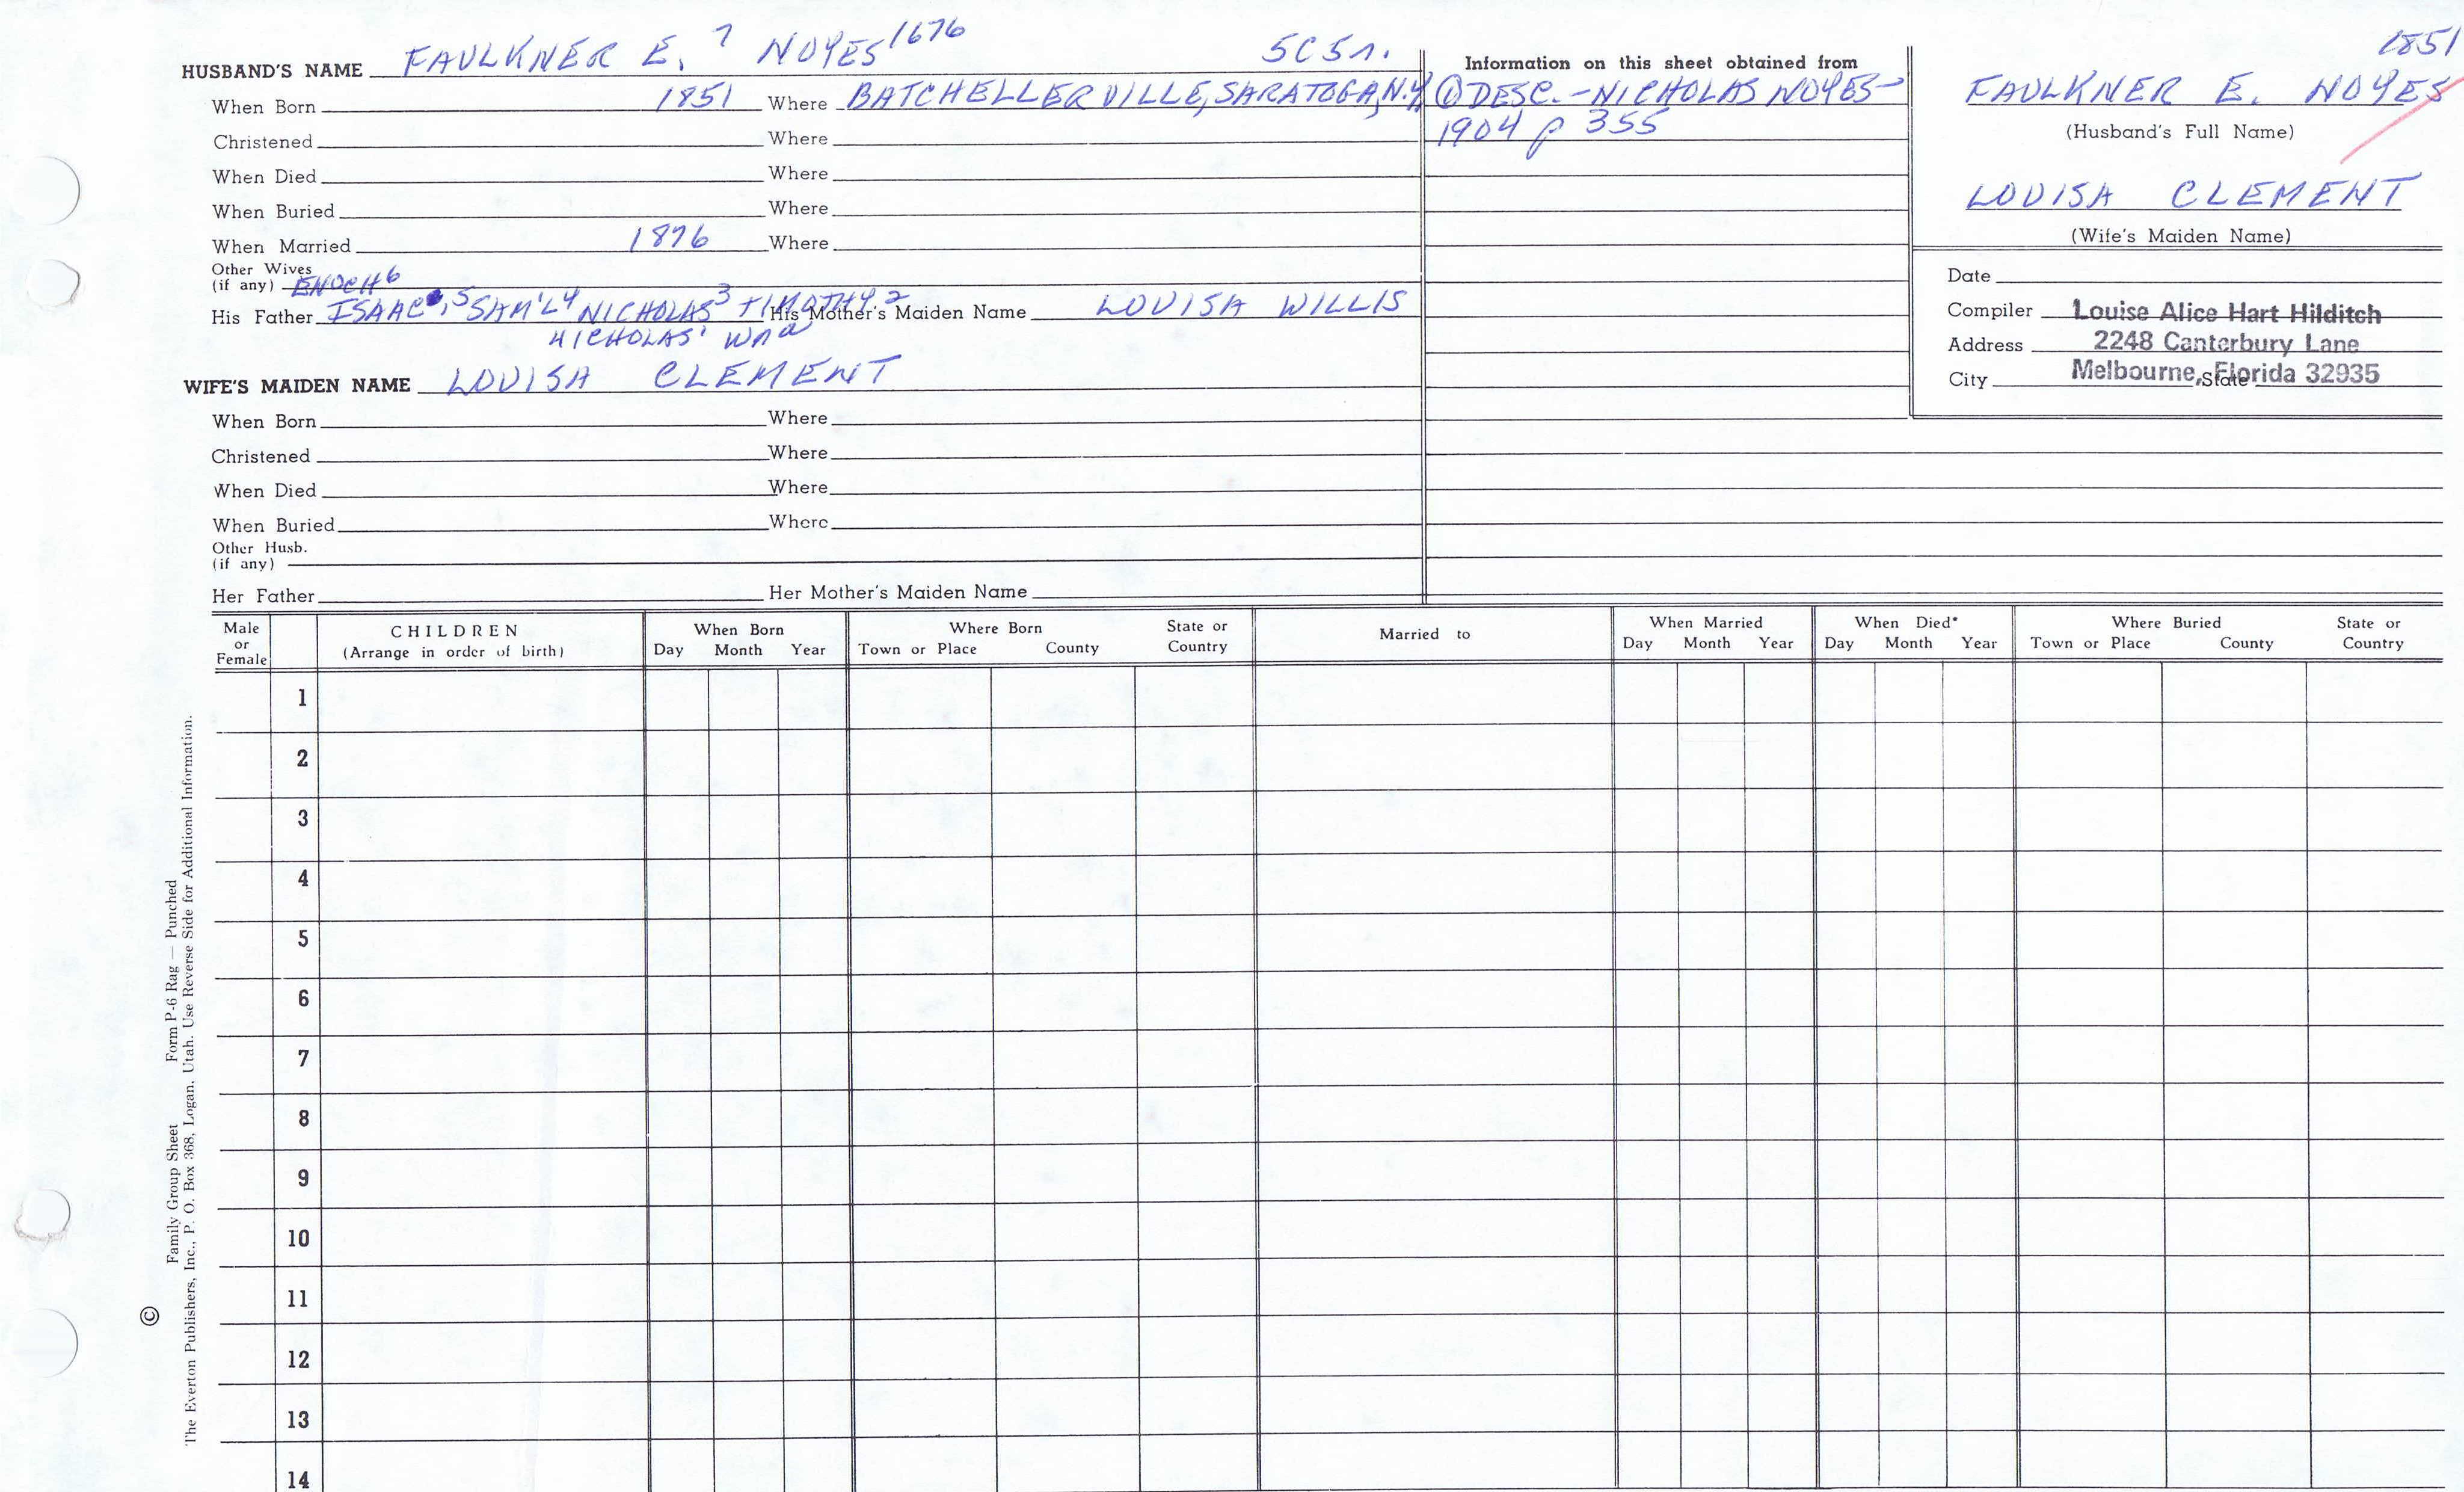 HUSBAND'S NAME FAULKNER E. 7 NOYES 1676 5C5r.
When Born 1851 Where BATCHELLERVILLE, SARATOGA, N.Y
Christened Where
When Died Where
When Buried Where
When Married 1876 Where
Other Wives
(if any) ENOCH 6
His Father ISAAC, 5 SAM'L 4 NICHOLAS 3 TIMOTHY 2 His Mother's Maiden Name LOUISA WILLIS
NICHOLAS 1 Wm a
WIFE'S MAIDEN NAME LOUISA CLEMENT
When Born Where
Christened Where
When Died Where
When Buried Where
Other Husb.
(if any)
Her Father Her Mother's Maiden Name
Information on this sheet obtained from
① DESC. - NICHOLAS NOYES -
1904 p 355
1851
FAULKNER E. NOYES
(Husband's Full Name)
LOUISA CLEMENT
(Wife's Maiden Name)
Date
Compiler Louise Alice Hart Hilditch
Address 2248 Canterbury Lane
City Melbourne, Florida 32935 State
Male or Female
CHILDREN
(Arrange in order of birth)
When Born
Day Month Year
Where Born
Town or Place County State or Country
Married to
When Married
Day Month Year
When Died*
Day Month Year
Where Buried
Town or Place County State or Country
1
2
3
4
5
6
7
8
9
10
11
12
13
14
Family Group Sheet Form P-6 Rag — Punched
© The Everton Publishers, Inc., P. O. Box 368, Logan, Utah. Use Reverse Side for Additional Information.